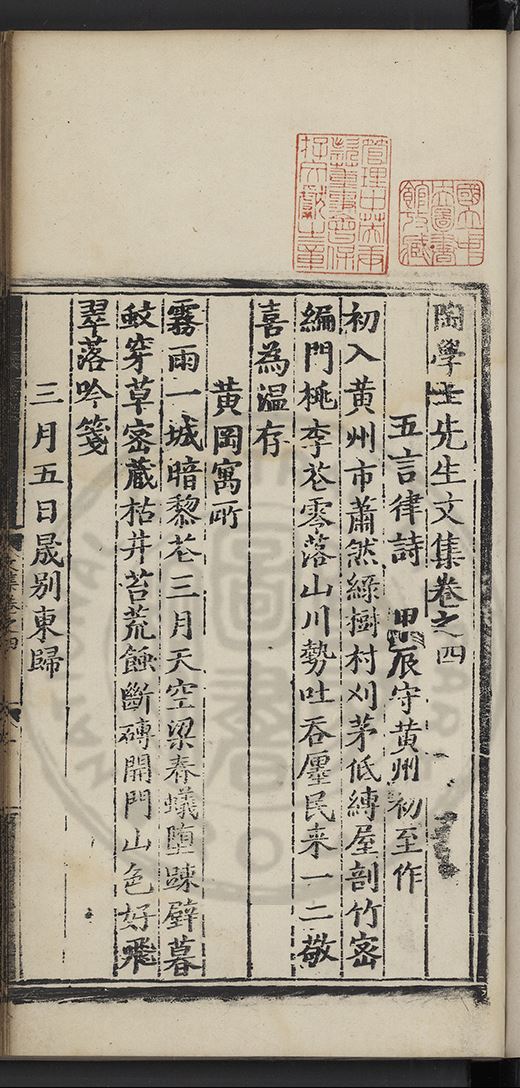 陶學士先生文集卷之四
五言律詩 甲辰守黃州初至作
初入黃州市蕭然綠樹村刈茅低縛屋剖竹密
編門桃李花零落山川勢吐吞廛民来一二敬
喜為溫存
黃岡寓所
霧雨一城暗黎花三月天空梁春蟻墮踈壁暮
蚊穿草密蔵枯井苔荒蝕斷磚開門山色好飛
翠落吟箋
三月五日晟别東歸
國立中
央圖書
館收藏
管理中英庚
款董事會保
存文獻之章